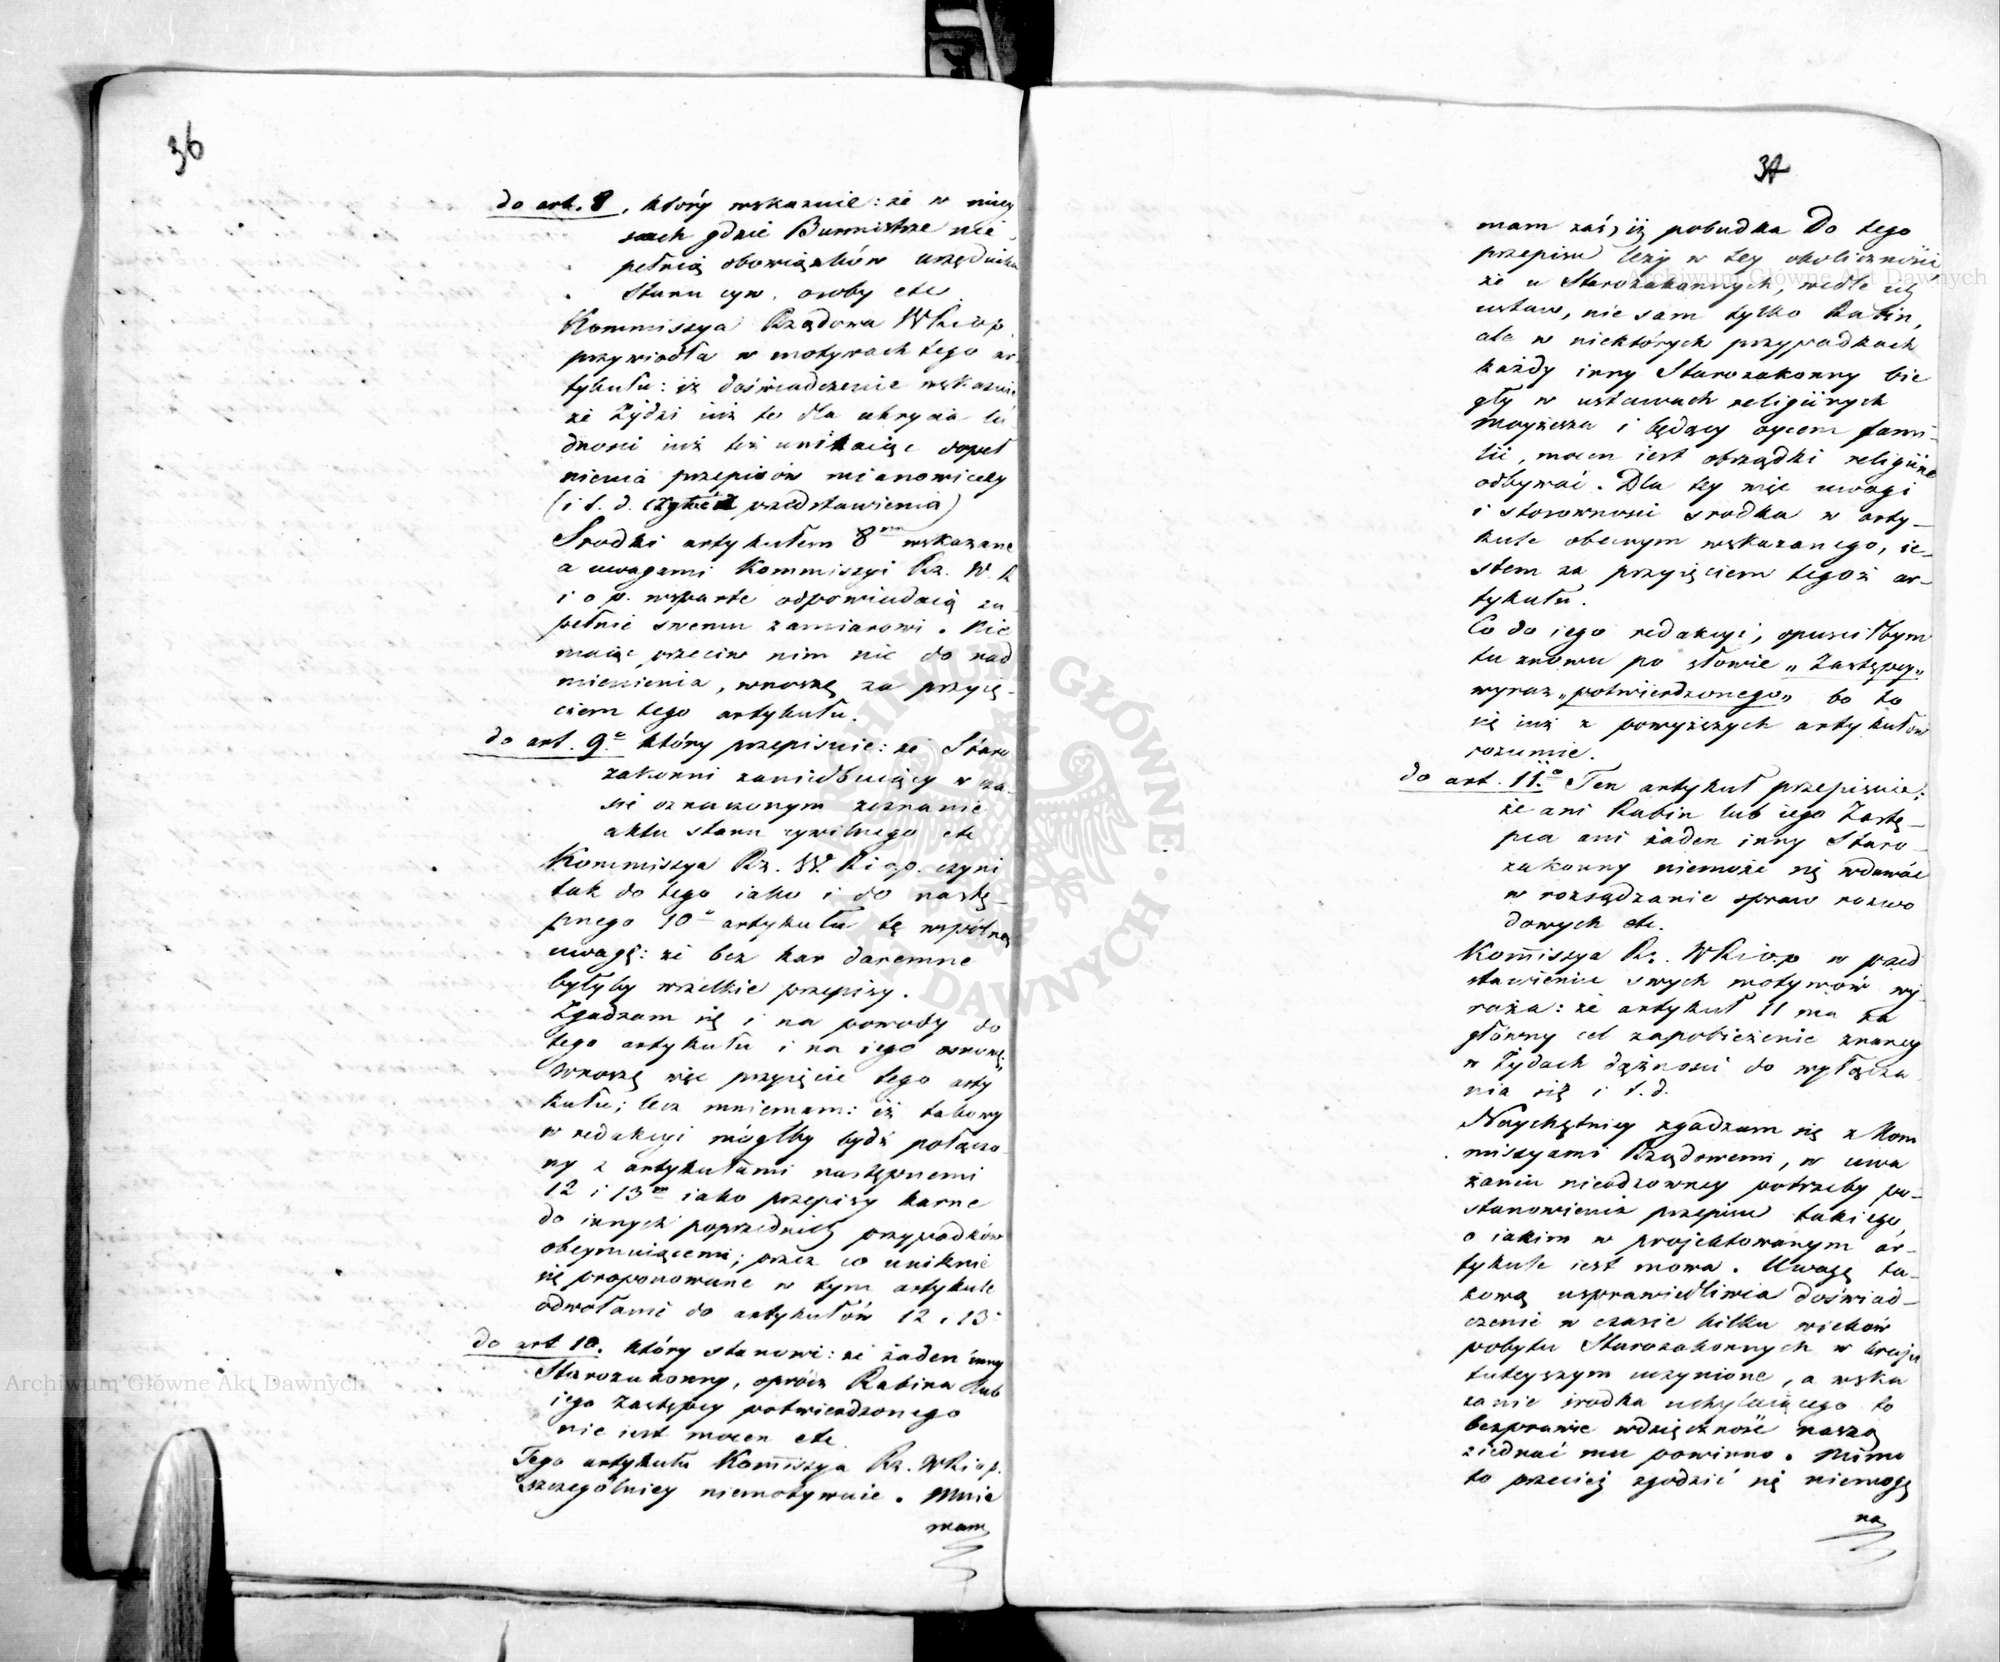 36
do art. 8, który wskazuie: że w miey
scach gdzie Burmistrze nie
pełnią obowiązków urzędnika
Stanu cyw. osoby etc
Kommissya Rządowa WRiop.
przywiodła w motywach tego ar
tykułu: iż doświadczenie wskazuie
że Żydzi iuż to dla ukrycia lu
dności iuż też unikaiąc dopeł
nienia przepisów mianowicely
(i t. d. przedstawienia)
Srodki artykułem 8m wskazane
a uwagami Kommissyi Rz. W. R
i o p. wsparte odpowiadaią zu
pełnie swemu zamiarowi. Nie
maiąc przeciw nim nic do nad
mienienia, wnoszę za przyię-
ciem tego artykułu.
do art. 9o który przepisuie: że Staro
zakonni zaniedbuiący w cza-
sie oznaczonym zeznanie
aktu stanu cywilnego etc
Kommissya Rz. W. R i o p. czyni
tak do tego iako i do nastę-
pnego 10o artykułu tę wspólną
uwagę: że bez kar daremne
byłyby wszelkie przepisy.
Zgadzam się i na powody do
tego artykułu i na iego osnowę,
wnoszę więc przyięcie tego arty
kułu; lecz mniemam: iż takowy
w redakcyi mógłby bydź połączo
ny z artykułami następnemi
12 i 13m iako przepisy karne
do innych poprzednich przypadków
obeymuiącemi; przez co uniknie
się proponowane w tym artykule
odwołanie do artykułów 12 i 13o
do art 10. który stanowi: że żaden inny
Starozakonny, oprócz Rabina lub
iego Zastępcy potwierdzonego
nie iest mocen etc.
Tego artykułu Kom̄issya Rz. WRiop.
szczególniey niemotywuie. Mnie
mam
37
mam zaś, iż pobudka Do tego
przepisu leży w tey okoliczności
że u Starozakonnych, wedle ich
ustaw, nie sam tylko Rabin,
ale w niektórych przypadkach
każdy inny Starozakonny bie
gły w ustawach religiinych
Moyżesza i będący oycem fami-
lii, mocen iest obrządki religiine
odbywać. Dla tey więc uwagi
i stosowności srodka w arty-
kule obecnym wskazanego, ie-
stem za przyięciem tegoż ar-
tykułu.
Co do iego redakcyi, opuściłbym
tu znowu po słowie „Zastępcy"
wyraz „potwierdzonego" bo to
się iuż z powyższych artykułów
rozumie.
do art. 11.o Ten artykuł przepisuie:
że ani Rabin lub iego Zastę-
pca ani żaden inny Staro-
zakonny niemoże się wdawać
w rozsądzanie spraw rozwo
dowych etc.
Kom̄issya Rz. WRiop w przed
stawieniu swych motywów wy-
raża: że artykuł 11 ma za
główny cel zapobieżenie znaney
w Żydach dążności do wyłącza
nia się i t. d.
Naychętniey zgadzam się z Kom
missyami Rządowemi, w uwa
żaniu nieodzowney potrzeby po-
stanowienia przepisu takiego,
o iakim w projektowanym ar-
tykule iest mowa. Uwagę ta-
kową usprawiedliwia doświad-
czenie w czasie kilku wieków
pobytu Starozakonnych w kraju
tuteyszym uczynione, a wska
zanie srodka uchylaiącego to
bezprawie wdzięczność naszą
ziednać mu powinno. Mimo
to przecięż zgodzić się niemogę
na
Archiwum Główne Akt Dawnych
Archiwum Główne Akt Dawnych
ARCHIWUM GŁÓWNE AKT DAWNYCH